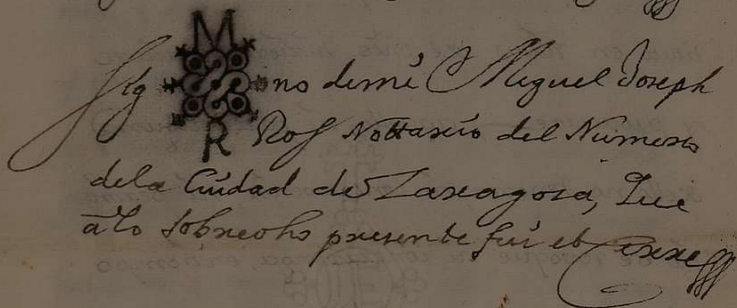 M
Sig no de mi Miguel Joseph
R Ros Nottario del Numero
dela Ciudad de Zaragoza, Que
a lo sobredho presente fui et Cerre